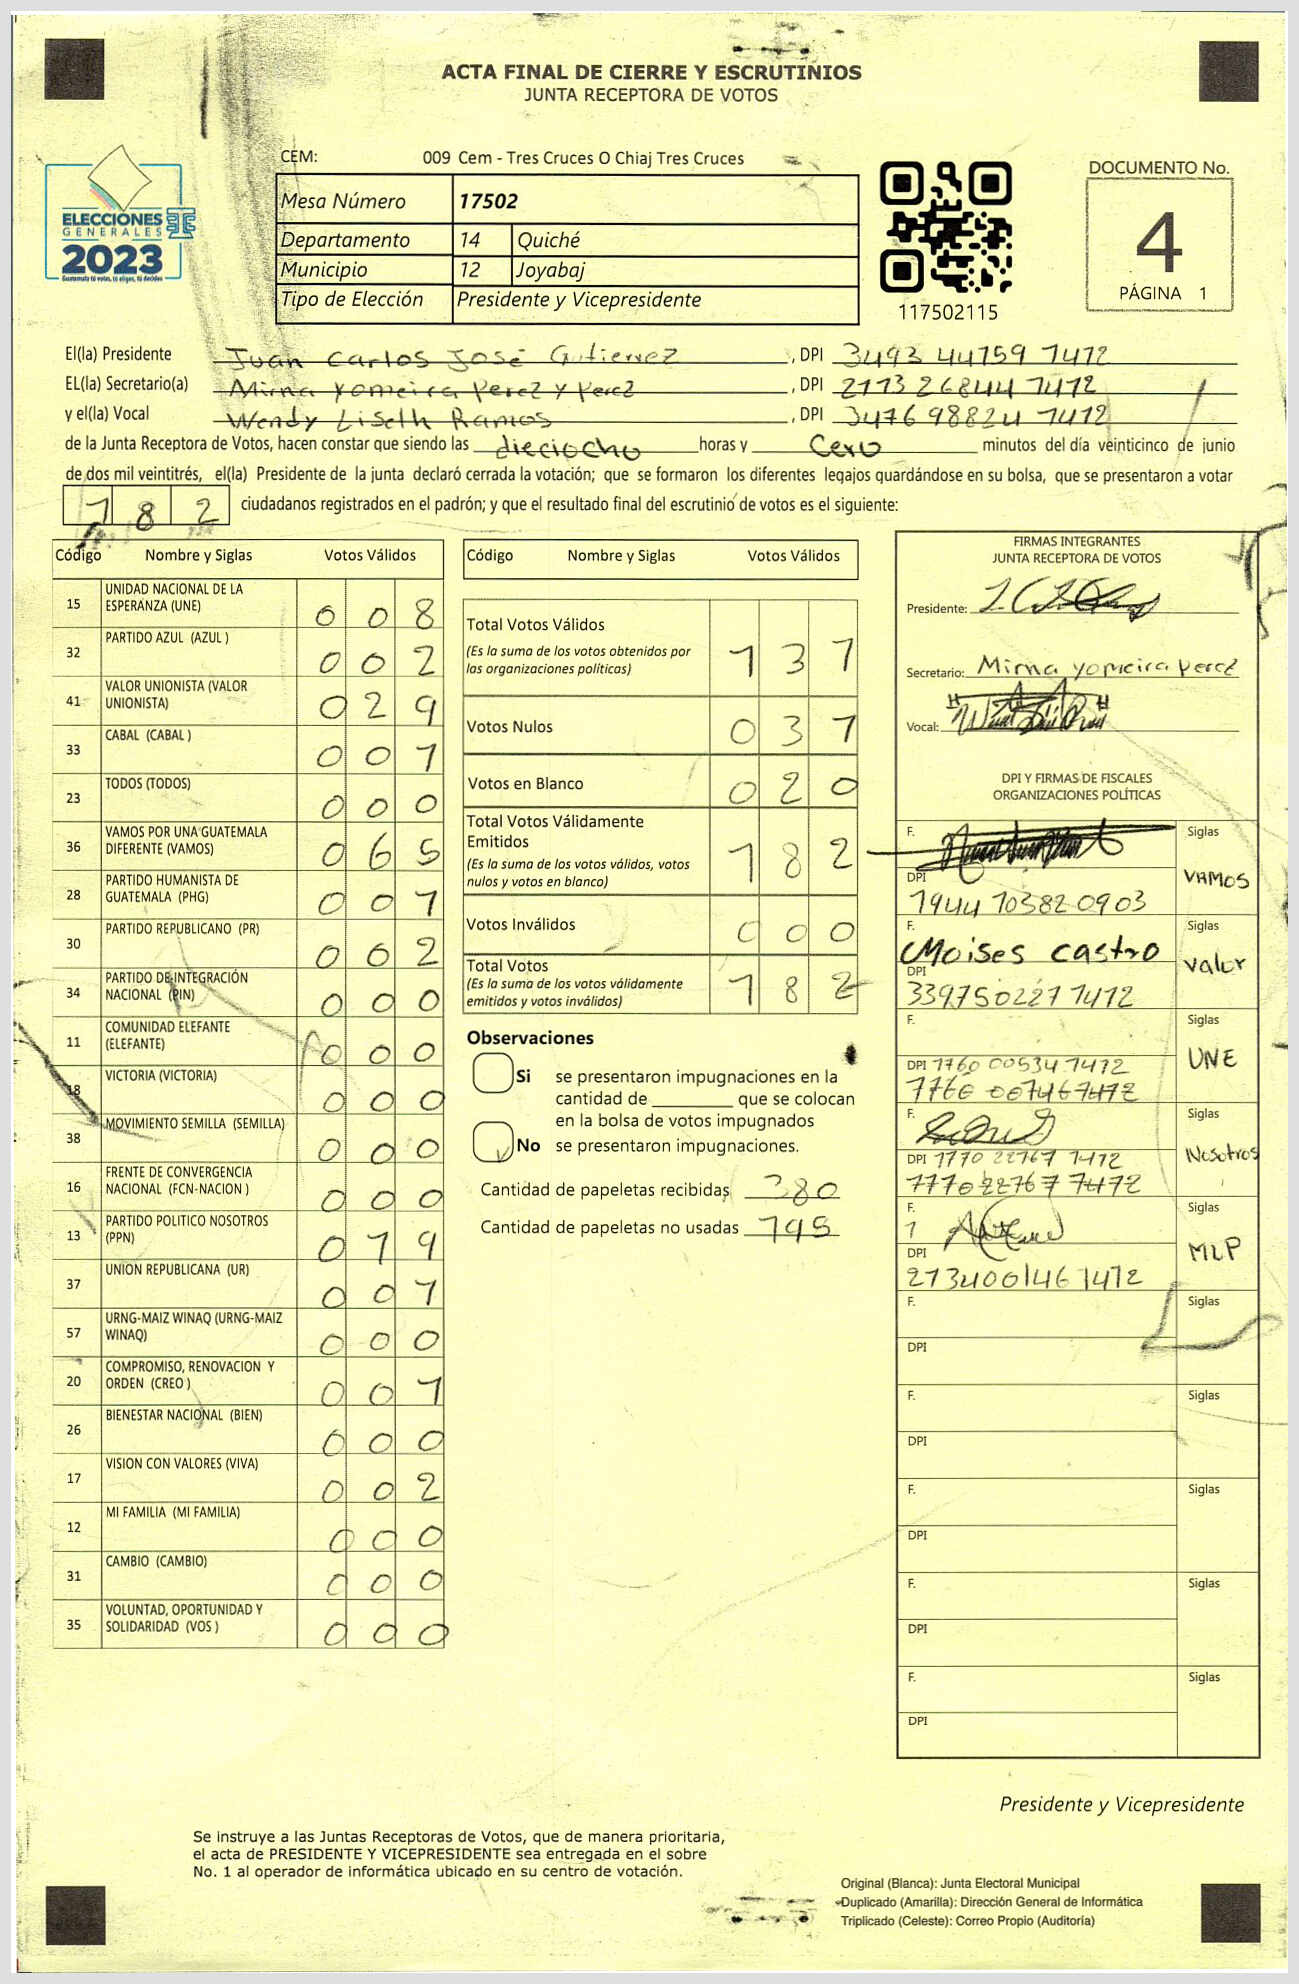 ACTA FINAL DE CIERRE Y ESCRUTINIOS
JUNTA RECEPTORA DE VOTOS
CEM: 009 Cem - Tres Cruces O Chiaj Tres Cruces
ELECCIONES
GENERALES
2023
Guatemala tú votas, tú eliges, tú decides
Mesa Número 17502
Departamento 14 Quiché
Municipio 12 Joyabaj
Tipo de Elección Presidente y Vicepresidente
117502115
DOCUMENTO No.
4
PÁGINA 1
El(la) Presidente Juan Carlos José Gutierrez, DPI 3493 44159 1412
EL(la) Secretario(a) Mirna Yomeira Perez y Perez, DPI 2113 26844 1412
y el(la) Vocal Wendy Liseth Ramos, DPI 3476 98824 1412
de la Junta Receptora de Votos, hacen constar que siendo las dieciocho horas y Cero minutos del día veinticinco de junio
de dos mil veintitrés, el(la) Presidente de la junta declaró cerrada la votación; que se formaron los diferentes legajos guardándose en su bolsa, que se presentaron a votar
182 ciudadanos registrados en el padrón; y que el resultado final del escrutinio de votos es el siguiente:
Código Nombre y Siglas Votos Válidos
15 UNIDAD NACIONAL DE LA ESPERANZA (UNE) 0 0 8
32 PARTIDO AZUL (AZUL ) 0 0 2
41 VALOR UNIONISTA (VALOR UNIONISTA) 0 2 9
33 CABAL (CABAL ) 0 0 1
23 TODOS (TODOS) 0 0 0
36 VAMOS POR UNA GUATEMALA DIFERENTE (VAMOS) 0 6 5
28 PARTIDO HUMANISTA DE GUATEMALA (PHG) 0 0 1
30 PARTIDO REPUBLICANO (PR) 0 0 2
34 PARTIDO DE INTEGRACIÓN NACIONAL (PIN) 0 0 0
11 COMUNIDAD ELEFANTE (ELEFANTE) 0 0 0
18 VICTORIA (VICTORIA) 0 0 0
38 MOVIMIENTO SEMILLA (SEMILLA) 0 0 0
16 FRENTE DE CONVERGENCIA NACIONAL (FCN-NACION ) 0 0 0
13 PARTIDO POLITICO NOSOTROS (PPN) 0 1 9
37 UNION REPUBLICANA (UR) 0 0 1
57 URNG-MAIZ WINAQ (URNG-MAIZ WINAQ) 0 0 0
20 COMPROMISO, RENOVACION Y ORDEN (CREO ) 0 0 1
26 BIENESTAR NACIONAL (BIEN) 0 0 0
17 VISION CON VALORES (VIVA) 0 0 2
12 MI FAMILIA (MI FAMILIA) 0 0 0
31 CAMBIO (CAMBIO) 0 0 0
35 VOLUNTAD, OPORTUNIDAD Y SOLIDARIDAD (VOS ) 0 0 0
Código Nombre y Siglas Votos Válidos
Total Votos Válidos 1 3 1
(Es la suma de los votos obtenidos por
las organizaciones políticas)
Votos Nulos 0 3 1
Votos en Blanco 0 2 0
Total Votos Válidamente
Emitidos 1 8 2
(Es la suma de los votos válidos, votos
nulos y votos en blanco)
Votos Inválidos 0 0 0
Total Votos 1 8 2
(Es la suma de los votos válidamente
emitidos y votos inválidos)
Observaciones
Si se presentaron impugnaciones en la
cantidad de ________ que se colocan
en la bolsa de votos impugnados
No se presentaron impugnaciones.
Cantidad de papeletas recibidas 380
Cantidad de papeletas no usadas 195
FIRMAS INTEGRANTES
JUNTA RECEPTORA DE VOTOS
Presidente:
Secretario: Mirna Yomeira Perez
Vocal:
DPI Y FIRMAS DE FISCALES
ORGANIZACIONES POLÍTICAS
F. Siglas
VAMOS
DPI
1944 10382 0903
F. Siglas
Moises Castro Valor
DPI
339150221 1412
F. Siglas
UNE
DPI 1760 00534 1412
F. Siglas
Nosotros
DPI 1770 22767 1412
1770 22767 1412
F. Siglas
1 MLP
DPI
2134001461412
F. Siglas
DPI
F. Siglas
DPI
F. Siglas
DPI
F. Siglas
DPI
F. Siglas
DPI
Presidente y Vicepresidente
Se instruye a las Juntas Receptoras de Votos, que de manera prioritaria,
el acta de PRESIDENTE Y VICEPRESIDENTE sea entregada en el sobre
No. 1 al operador de informática ubicado en su centro de votación.
Original (Blanca): Junta Electoral Municipal
Duplicado (Amarilla): Dirección General de Informática
Triplicado (Celeste): Correo Propio (Auditoría)